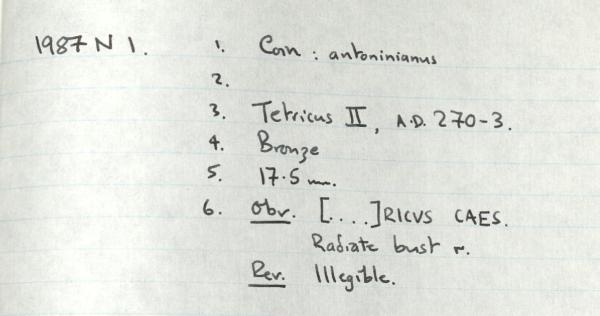 1987 N 1. 1. Coin : antoninianus
2.
3. Tetricus II, A.D. 270-3.
4. Bronze
5. 17.5 mm.
6. Obv. [....]RICVS CAES.
Radiate bust r.
Rev. Illegible.